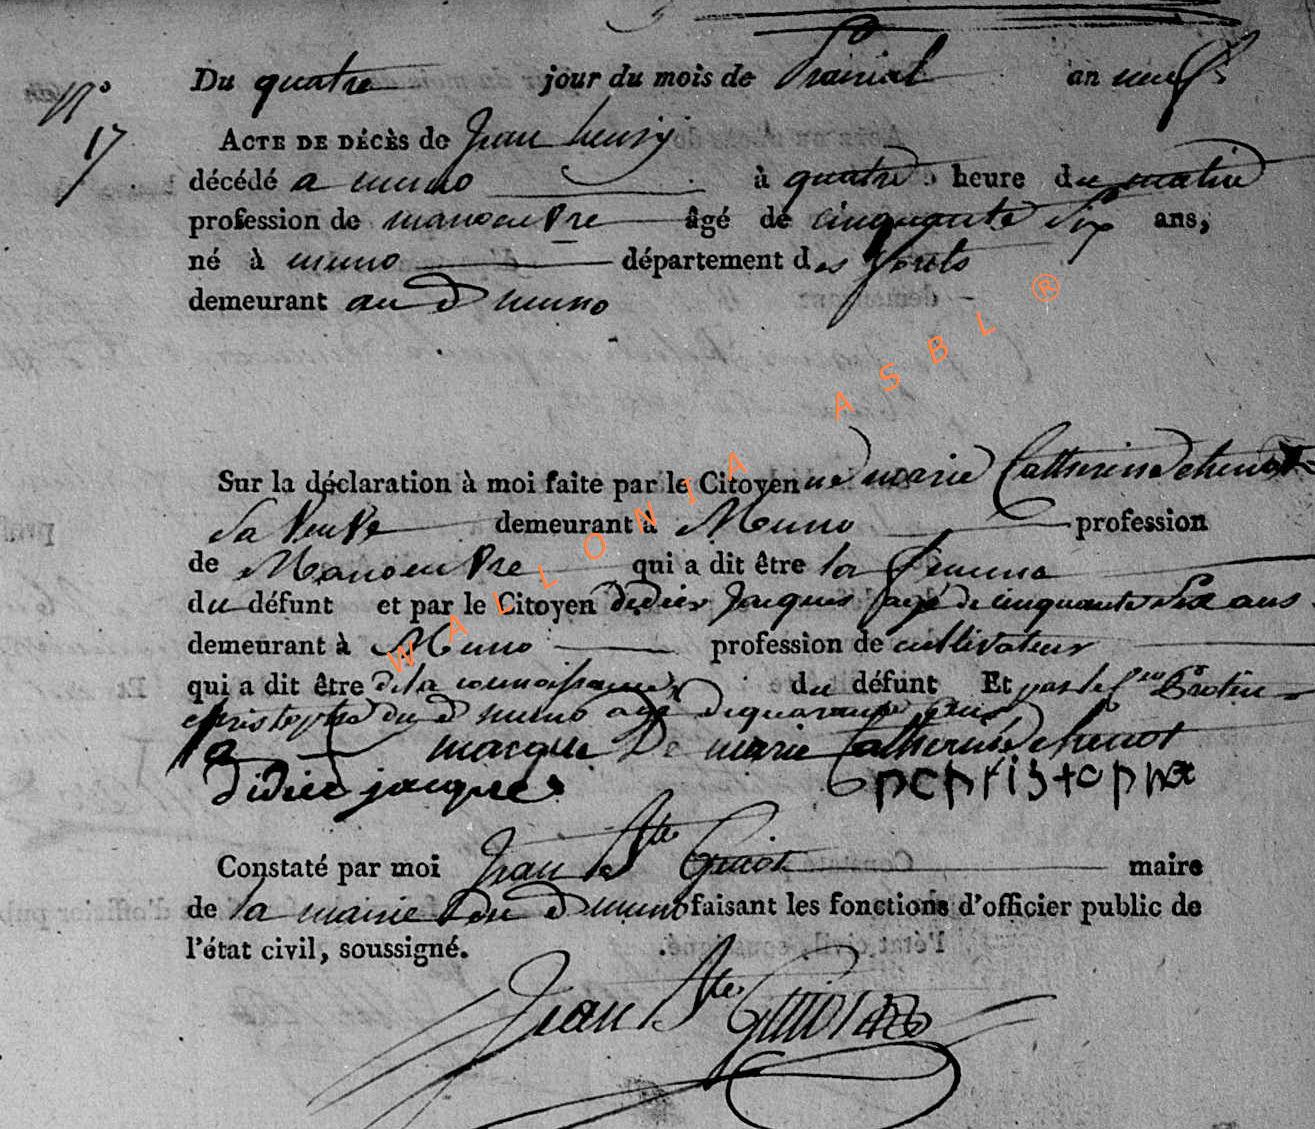 Nº 17
Du quatre jour du mois de Prairial an neuf
ACTE DE DÉCÈS de Jean henry
décédé a muno à quatre heure du matin
profession de manoeuvre âgé de cinquante six ans,
né à muno département des forets
demeurant au d muno
Sur la déclaration à moi faite par le Citoyenne marie Catherine chenot
sa veuve demeurant à Muno profession
de Manoeuvre qui a dit être la femme
du défunt et par le Citoyen didier Jacques agé de cinquante six ans
demeurant à Muno profession de cultivateur
qui a dit être de la connoissance du défunt Et par le
christophe du d muno agé de quarante ans
la marque De marie Catherine chenot
didier jacques pchristophe
Constaté par moi Jean Bte Guiot maire
de la mairie du d muno faisant les fonctions d'officier public de
l'état civil, soussigné.
Jean Bte Guiot
WALLONIA ASBL ®